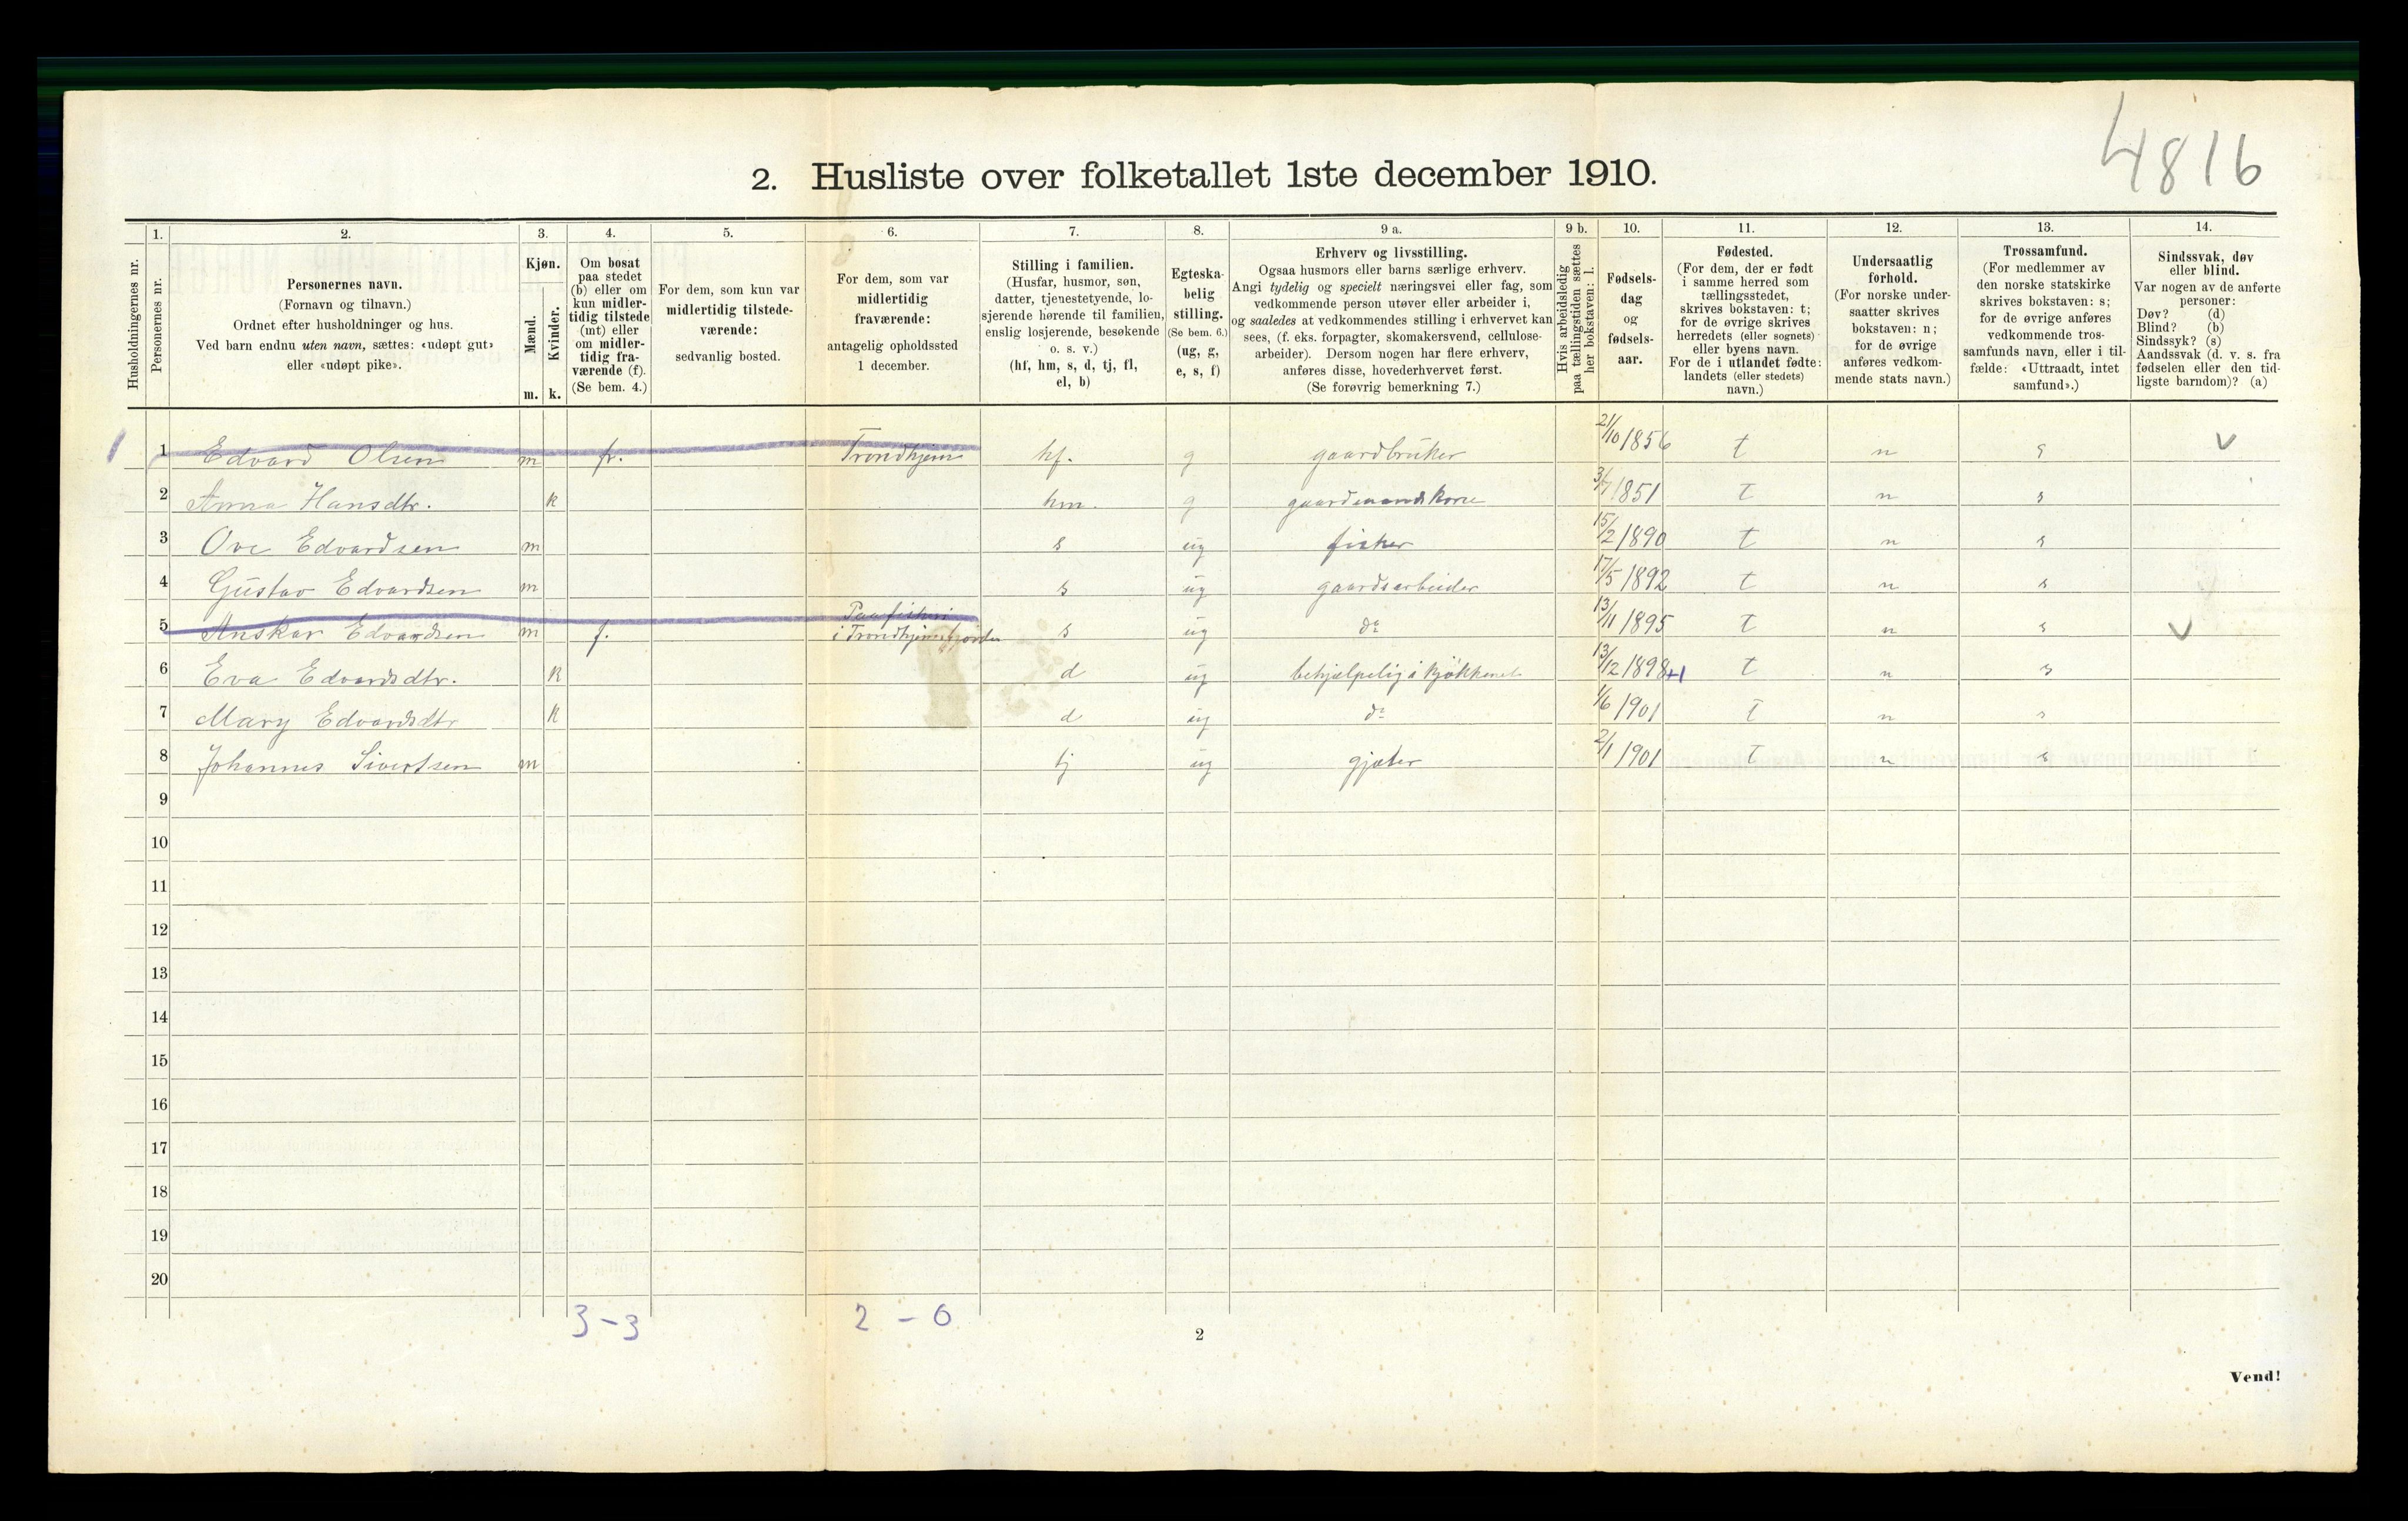 4816
2. Husliste over folketallet 1ste december 1910.
Husholdningernes nr.
1. Personernes nr.
2. Personernes navn. (Fornavn og tilnavn.) Ordnet efter husholdninger og hus. Ved barn endnu uten navn, sættes: «udøpt gut» eller «udøpt pike».
3. Kjøn. Mænd. m. Kvinder. k.
4. Om bosat paa stedet (b) eller om kun midlertidig tilstede (mt) eller om midlertidig fraværende (f). (Se bem. 4.)
5. For dem, som kun var midlertidig tilstedeværende: sedvanlig bosted.
6. For dem, som var midlertidig fraværende: antagelig opholdssted 1 december.
7. Stilling i familien. (Husfar, husmor, søn, datter, tjenestetyende, losjerende hørende til familien, enslig losjerende, besøkende o. s. v.) (hf, hm, s, d, tj, fl, el, b)
8. Egteskabelig stilling. (Se bem. 6.) (ug, g, e, s, f)
9 a. Erhverv og livsstilling. Ogsaa husmors eller barns særlige erhverv. Angi tydelig og specielt næringsvei eller fag, som vedkommende person utøver eller arbeider i, og saaledes at vedkommendes stilling i erhvervet kan sees, (f. eks. forpagter, skomakersvend, cellulosearbeider). Dersom nogen har flere erhverv, anføres disse, hovederhvervet først. (Se forøvrig bemerkning 7.)
9 b. Hvis arbeidsledig paa tællingstiden sættes her bokstaven: l.
10. Fødselsdag og fødselsaar.
11. Fødested. (For dem, der er født i samme herred som tællingsstedet, skrives bokstaven: t; for de øvrige skrives herredets (eller sognets) eller byens navn. For de i utlandet fødte: landets (eller stedets) navn.)
12. Undersaatlig forhold. (For norske undersaatter skrives bokstaven: n; for de øvrige anføres vedkommende stats navn.)
13. Trossamfund. (For medlemmer av den norske statskirke skrives bokstaven: s; for de øvrige anføres vedkommende trossamfunds navn, eller i tilfælde: «Uttraadt, intet samfund».)
14. Sindssvak, døv eller blind. Var nogen av de anførte personer: Døv? (d) Blind? (b) Sindssyk? (s) Aandssvak (d. v. s. fra fødselen eller den tidligste barndom)? (a)
1 1 Edvard Olsen m fr. Trondhjem hf. g gaardbruker 21/10 1856 t n s v
2 Anna Hansdtr. k hm. g gaardmandskone 3/7 1851 t n s
3 Ove Edvardsen m s ug fisker 15/2 1890 t n s
4 Gustav Edvardsen m s ug gaardsarbeider 17/5 1892 t n s
5 Anskar Edvardsen m f. Paa fiskeri i Trondhjemsfjorden s ug do 13/11 1895 t n s v
6 Eva Edvardsdtr. k d ug behjælpelig i kjøkkenet 13/12 1898 +1 t n s
7 Mary Edvardsdtr k d ug do 1/6 1901 t n s
8 Johannes Sivertsen m tj ug gjæter 2/1 1901 t n s
9
10
11
12
13
14
15
16
17
18
19
20
3 - 3 2 - 0
2
Vend!